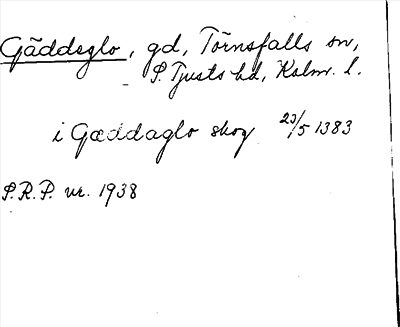 Gäddeglo, gd, Törnsfalls sn,
S. Tjusts hd, Kalm. l.
i Gæddaglo skog 23/5 1383
S.R.P. nr. 1938